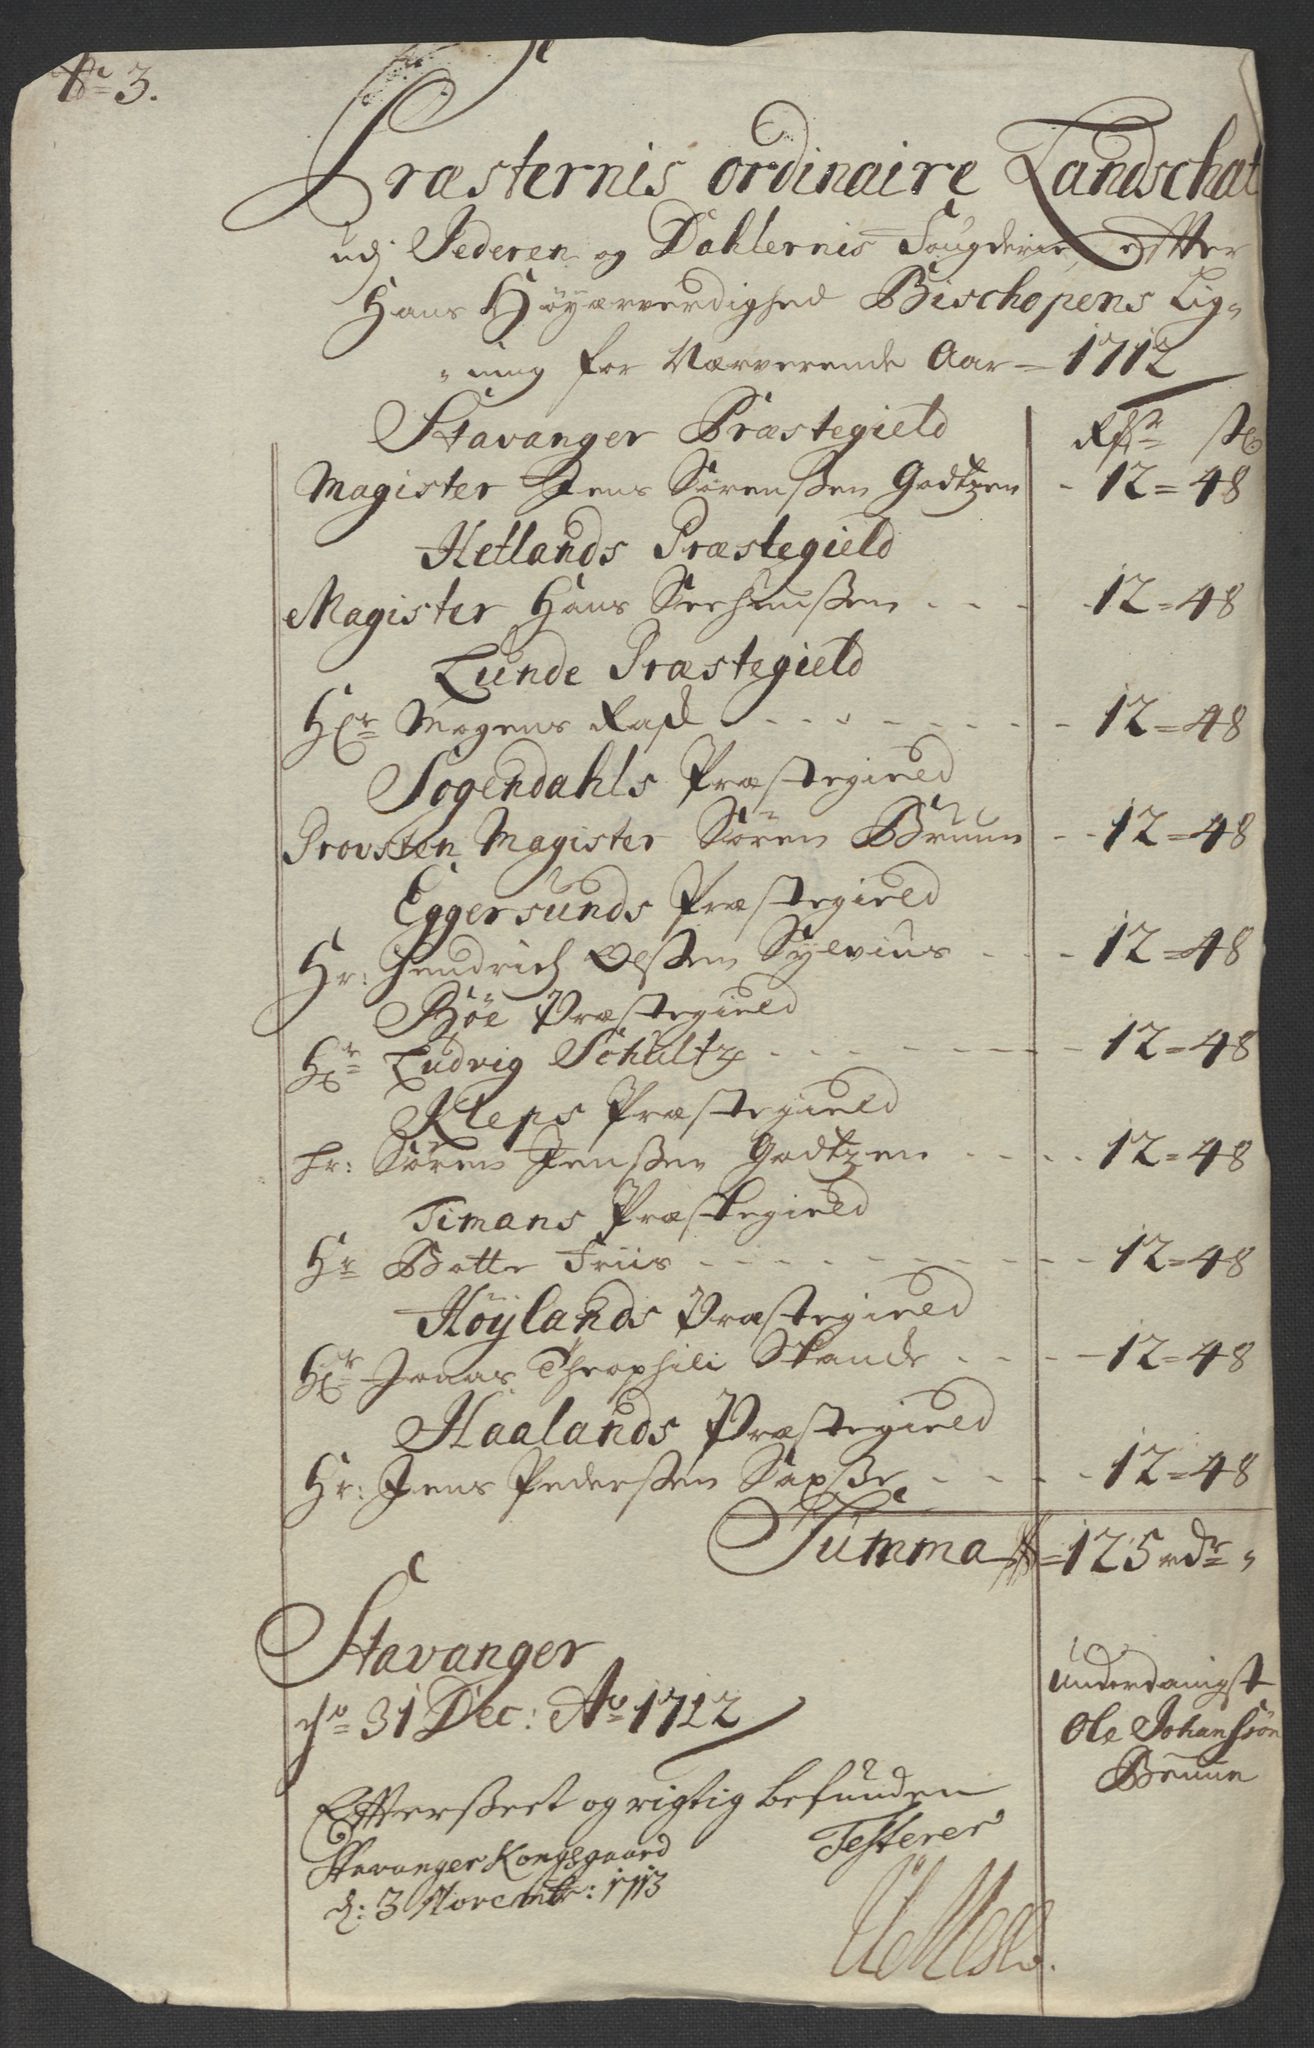 No 3.
Præsternis ordinaire Landschat
udj Jederen og Dahlernis Fougderie, effter
Hans Höyærverdighed Bischopens Lig-
-ning for Nærverende Aar = 1712
Stavanger Præstegield Rdr ß
Magister Jens Sörenßen Godtzen - 12 = 48
Hetlands Præstegield
Magister Hans Seehuußen - - - 12 = 48
Lunde Præstegield
Hr Mogens - - - 12 = 48
Sogendahls Præstegield
Provsten Magister Sören Bruun - - 12 = 48
Eggersunds Præstegield
Hr: Hendrich Olßen Sylvius - - - 12 = 48
Böe Præstegield
Hr Ludvig Schultz - - - 12 = 48
Kleps Præstegield
hr: Sören Jenßen Godtzen - - - 12 = 48
Timans Præstegield
Hr Botte Friis - - - 12 = 48
Höylands Præstegield
Hr Jonas Theophili Skande - - - 12 = 48
Haalands Præstegield
Hr: Jens Pederßen - - - 12 = 48
Summa = 125 rdr -
Stavanger
dn 31 Dec: Ao 1712
Underdanigst
Ole Johanßön
Bruun
Effterseet og rigtig befunden
Stavanger Kongsgaard Testerer
d: 3 Novembr: 1713